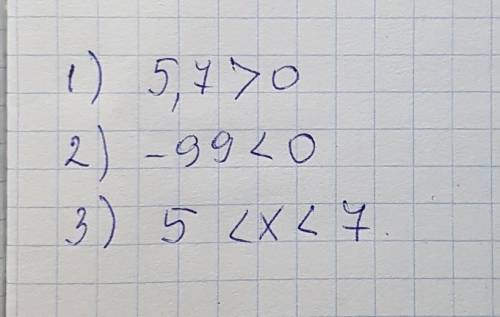 1) 5,7 > 0
2) -99 < 0
3) 5 < x < 7.